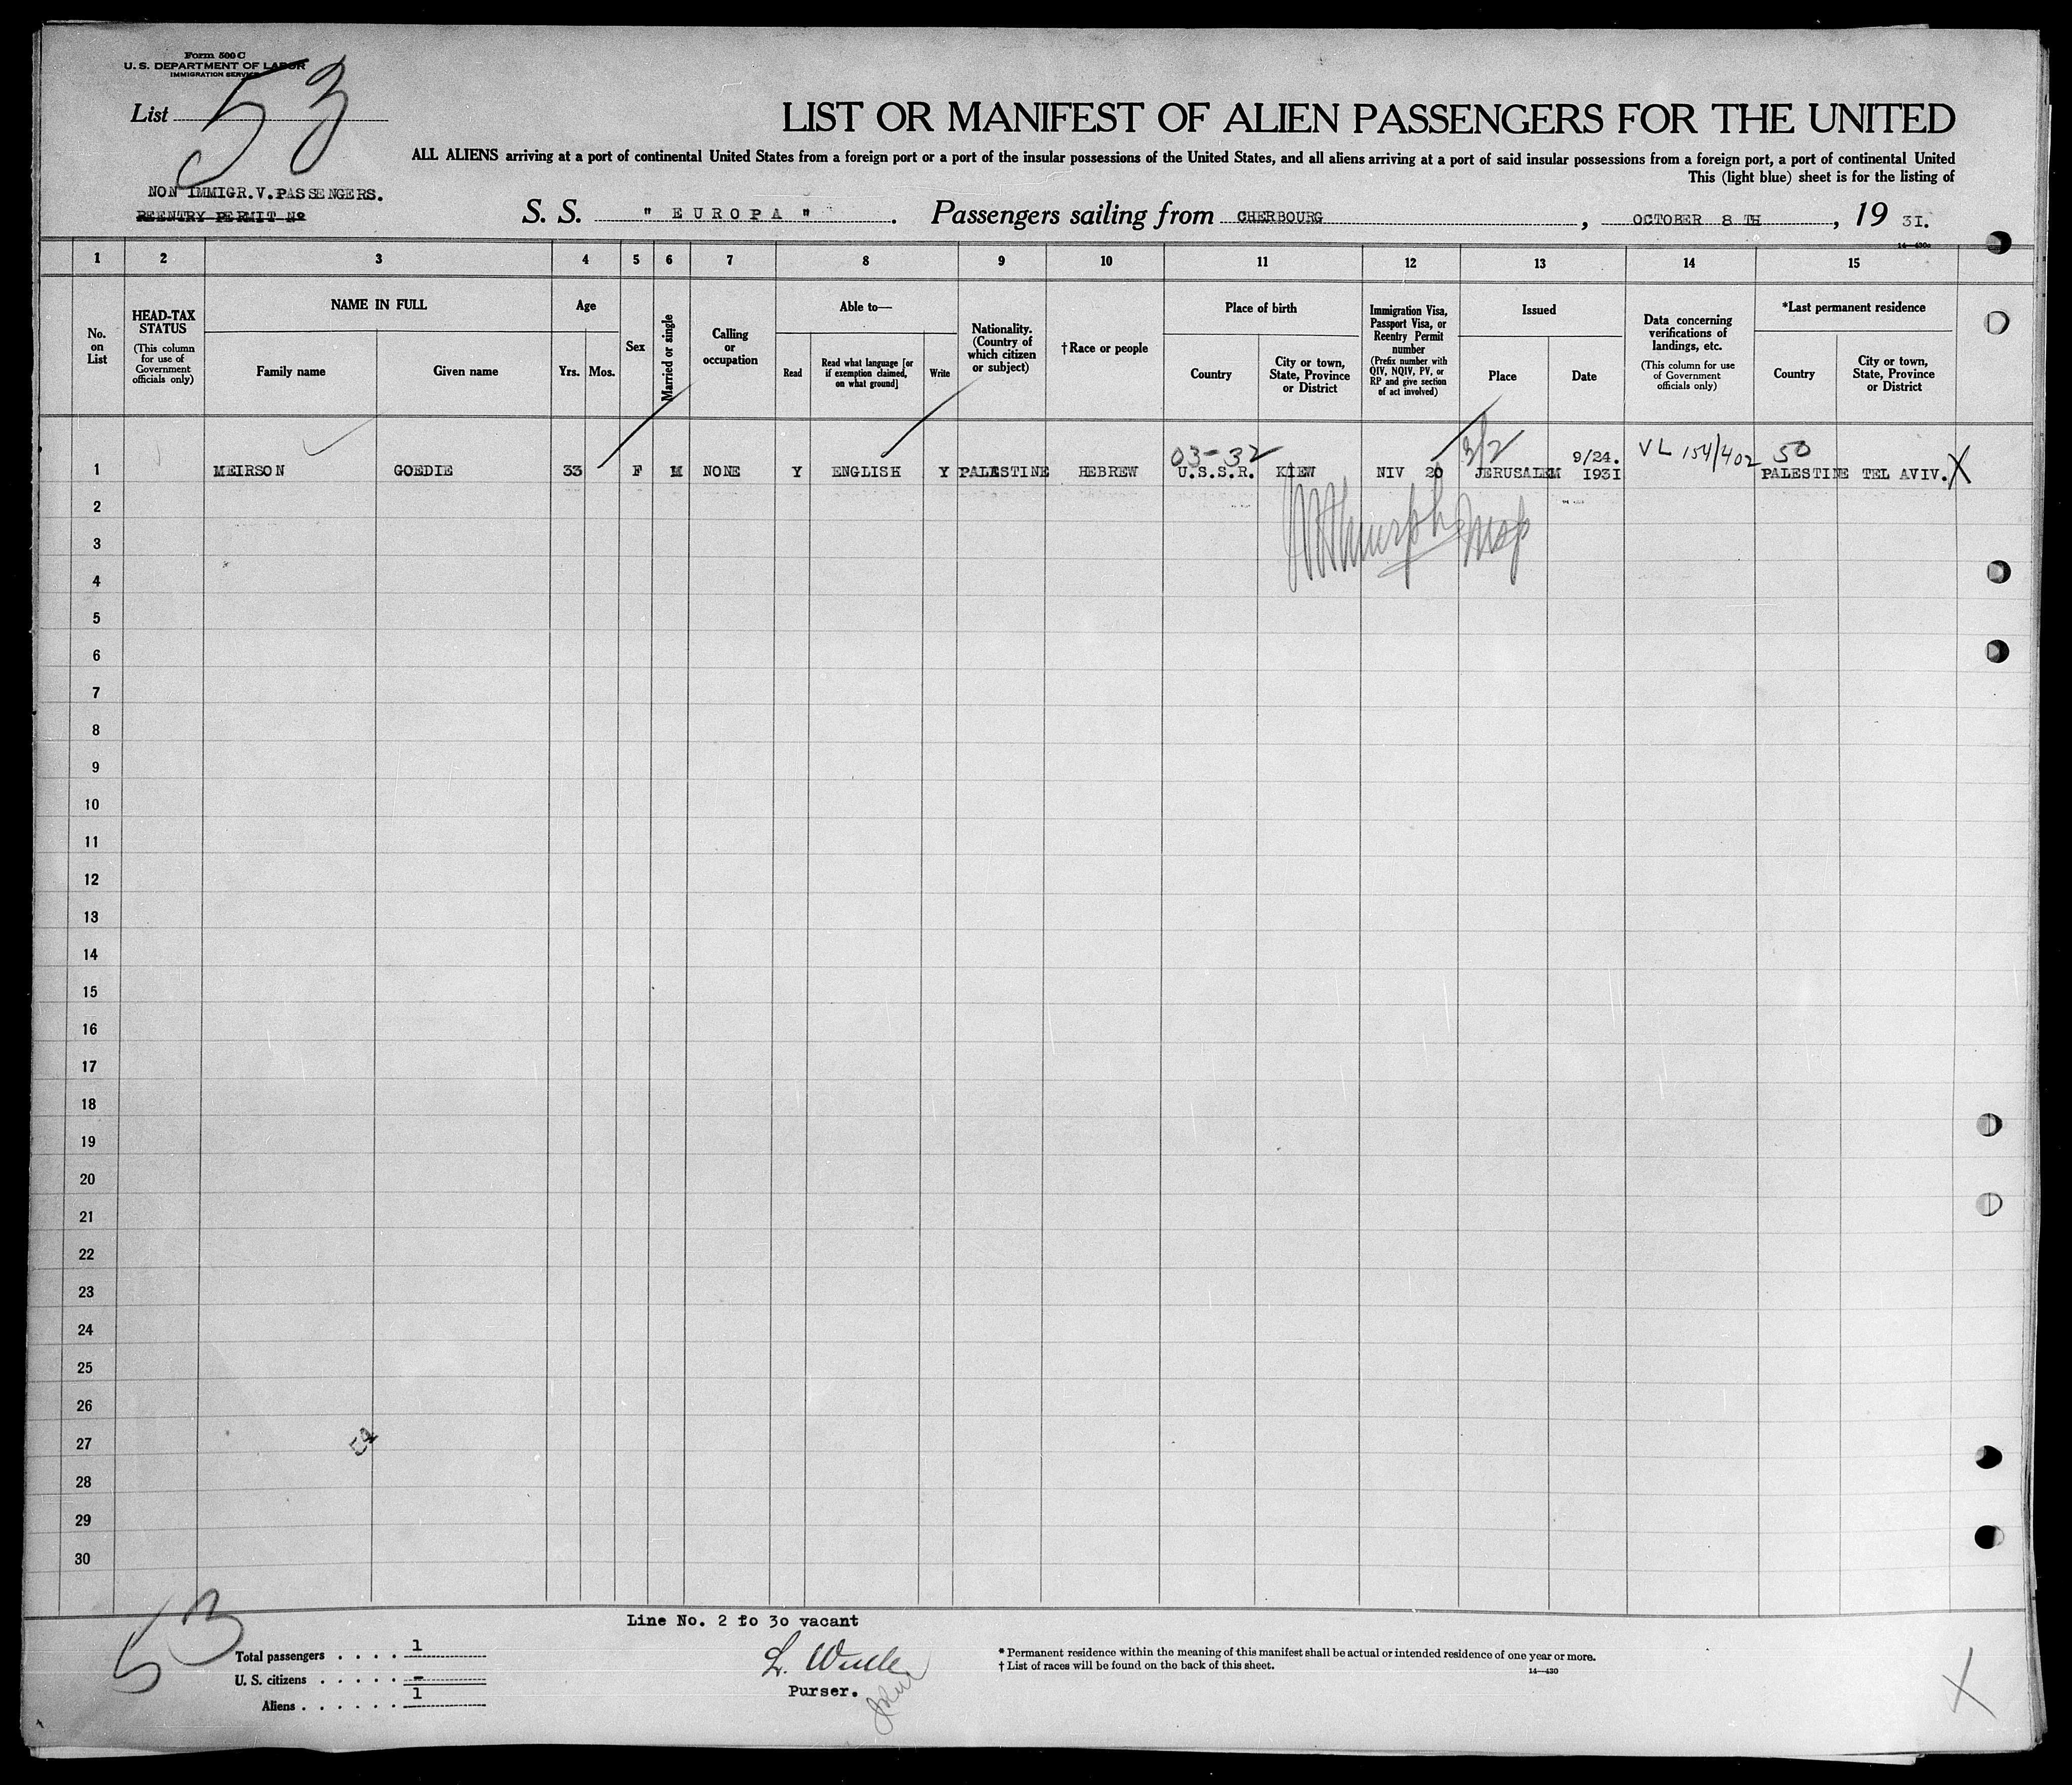 Form 500 C
U. S. DEPARTMENT OF LABOR
IMMIGRATION SERVICE
List 53
LIST OR MANIFEST OF ALIEN PASSENGERS FOR THE UNITED
ALL ALIENS arriving at a port of continental United States from a foreign port or a port of the insular possessions of the United States, and all aliens arriving at a port of said insular possessions from a foreign port, a port of continental United
This (light blue) sheet is for the listing of
NON IMMIGR.V.PASSENGERS.
REENTRY PERMIT No
S. S. " EUROPA " . Passengers sailing from CHERBOURG , OCTOBER 8 TH , 19 31.
14—430a
1 2 3 4 5 6 7 8 9 10 11 12 13 14 15
No. on List
HEAD-TAX STATUS
(This column for use of Government officials only)
NAME IN FULL
Family name
Given name
Age
Yrs.
Mos.
Sex
Married or single
Calling or occupation
Able to—
Read
Read what language [or if exemption claimed, on what ground]
Write
Nationality. (Country of which citizen or subject)
†Race or people
Place of birth
Country
City or town, State, Province or District
Immigration Visa, Passport Visa, or Reentry Permit number
(Prefix number with QIV, NQIV, PV, or RP and give section of act involved)
Issued
Place
Date
Data concerning verifications of landings, etc.
(This column for use of Government officials only)
*Last permanent residence
Country
City or town, State, Province or District
03-32 3/2 9/24. VL 154/402 50
1 MEIRSON GOEDIE 33 F M NONE Y ENGLISH Y PALESTINE HEBREW U.S.S.R. KIEW NIV 20 JERUSALEM 1931 PALESTINE TEL AVIV. X
2
3
4
5
6
7
8
9
10
11
12
13
14
15
16
17
18
19
20
21
22
23
24
25
26
27
28
29
30
53
Line No. 2 to 30 vacant
Total passengers . . . . 1
U. S. citizens . . . . . -
Aliens . . . . . . 1
Purser.
* Permanent residence within the meaning of this manifest shall be actual or intended residence of one year or more.
† List of races will be found on the back of this sheet.
14—430
X